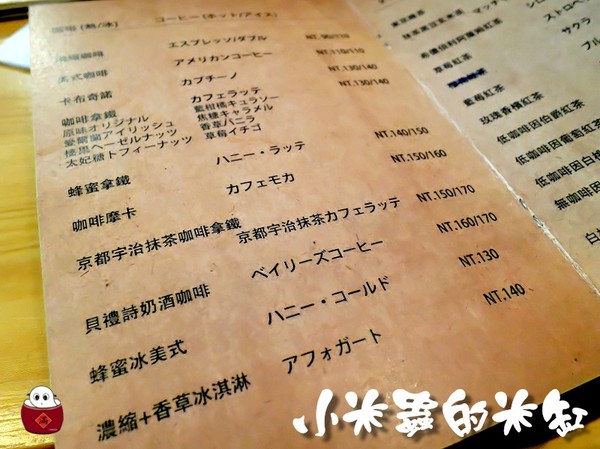 咖啡 (熱/冰) コーヒー (ホット/アイス)
濃縮咖啡 エスプレッソ/ダブル NT.90/110
美式咖啡 アメリカンコーヒー NT.110/110
卡布奇諾 カプチーノ NT.130/140
咖啡拿鐵 カフェラッテ NT.130/140
原味オリジナル 藍柑橘キュラソー
愛爾蘭アイリッシュ 焦糖キャラメル
榛果ヘーゼルナッツ 香草バニラ
太妃糖トフィーナッツ 草莓イチゴ
蜂蜜拿鐵 ハニー・ラッテ NT.140/150
咖啡摩卡 カフェモカ NT.150/160
京都宇治抹茶咖啡拿鐵 京都宇治抹茶カフェラッテ NT.150/170
貝禮詩奶酒咖啡 ベイリーズコーヒー NT.160/170
蜂蜜冰美式 ハニー・コールド NT.130
濃縮+香草冰淇淋 アフォガート NT.140
草莓紅茶
藍莓紅茶
玫瑰香檳紅茶
低咖啡因伯爵紅茶
低咖啡因葡萄紅茶
低咖啡因白桃
無咖啡因
ストロベ
サクラ
小米蟲的米缸